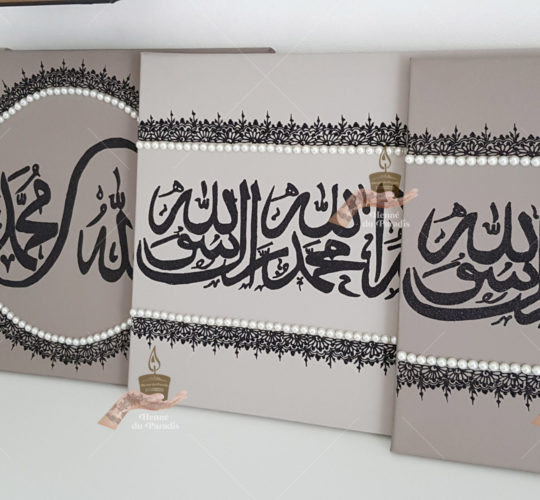 الله محمد
الله محمد رسول الله
رسول الله
Henné
du Paradis
Henné
du Paradis